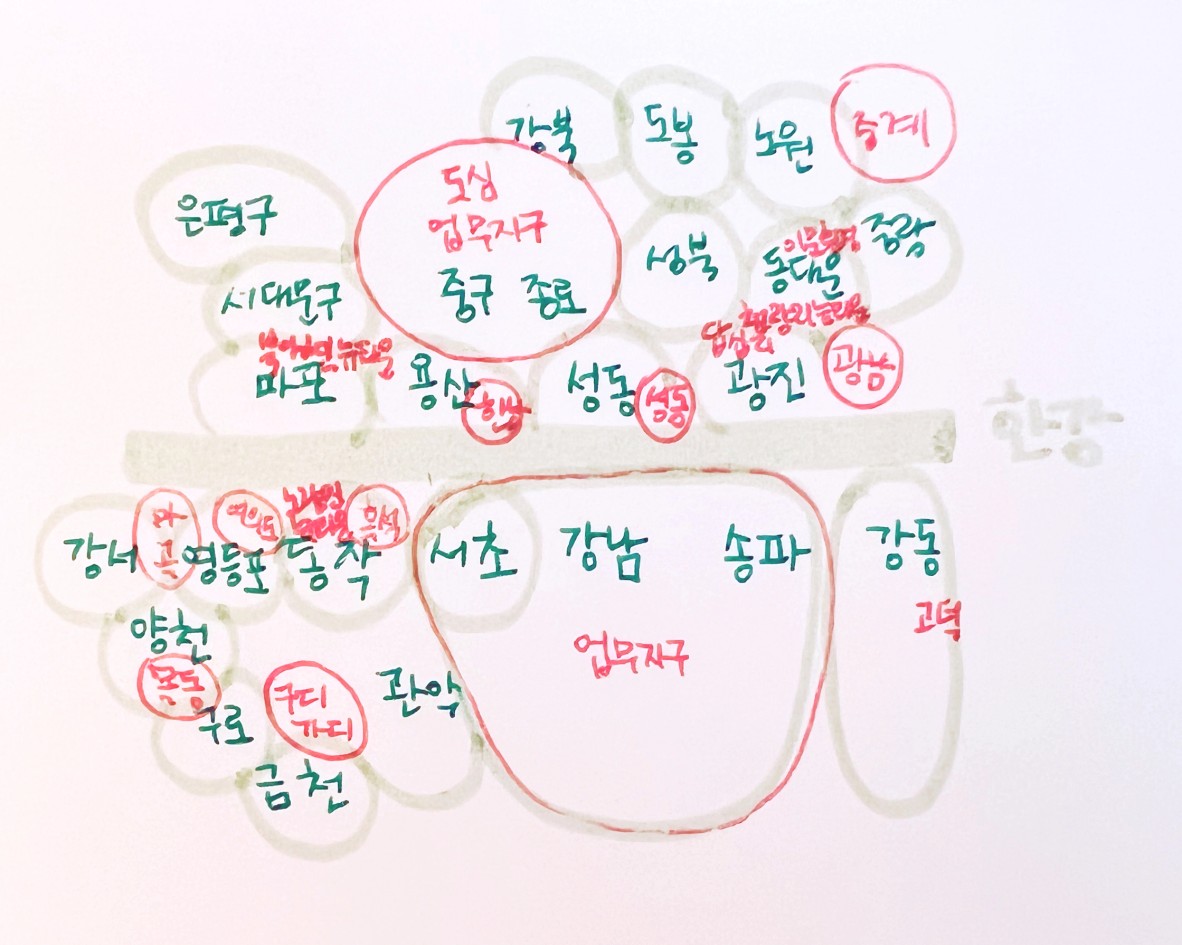 강북
도봉
노원
중계
도심
업무지구
중구 종로
은평구
서대문구
성북
이문휘경
동대문
중랑
청량리뉴타운
답십리
북아현뉴타운
마포
용산
한남
성동
성동
광진
광남
한강
강서
마곡
여의도
영등포
노량진
뉴타운
흑석
동작
서초
강남
송파
업무지구
강동
고덕
양천
목동
구로
구디
가디
관악
금천